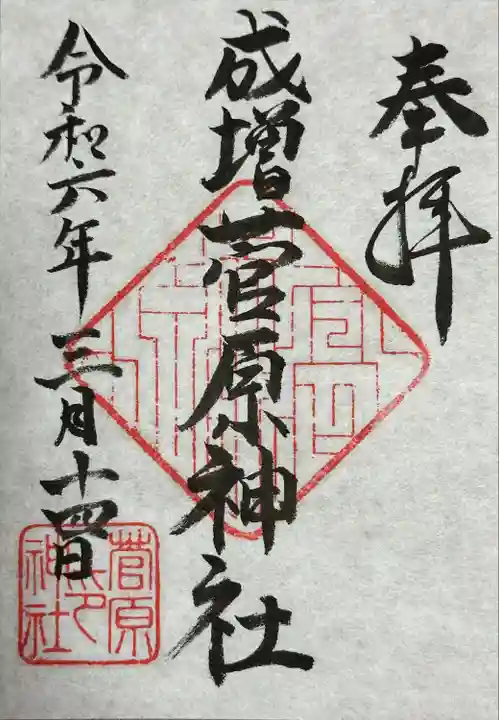 奉拝
成増菅原神社
令和六年三月十四日
菅原
神社
之印